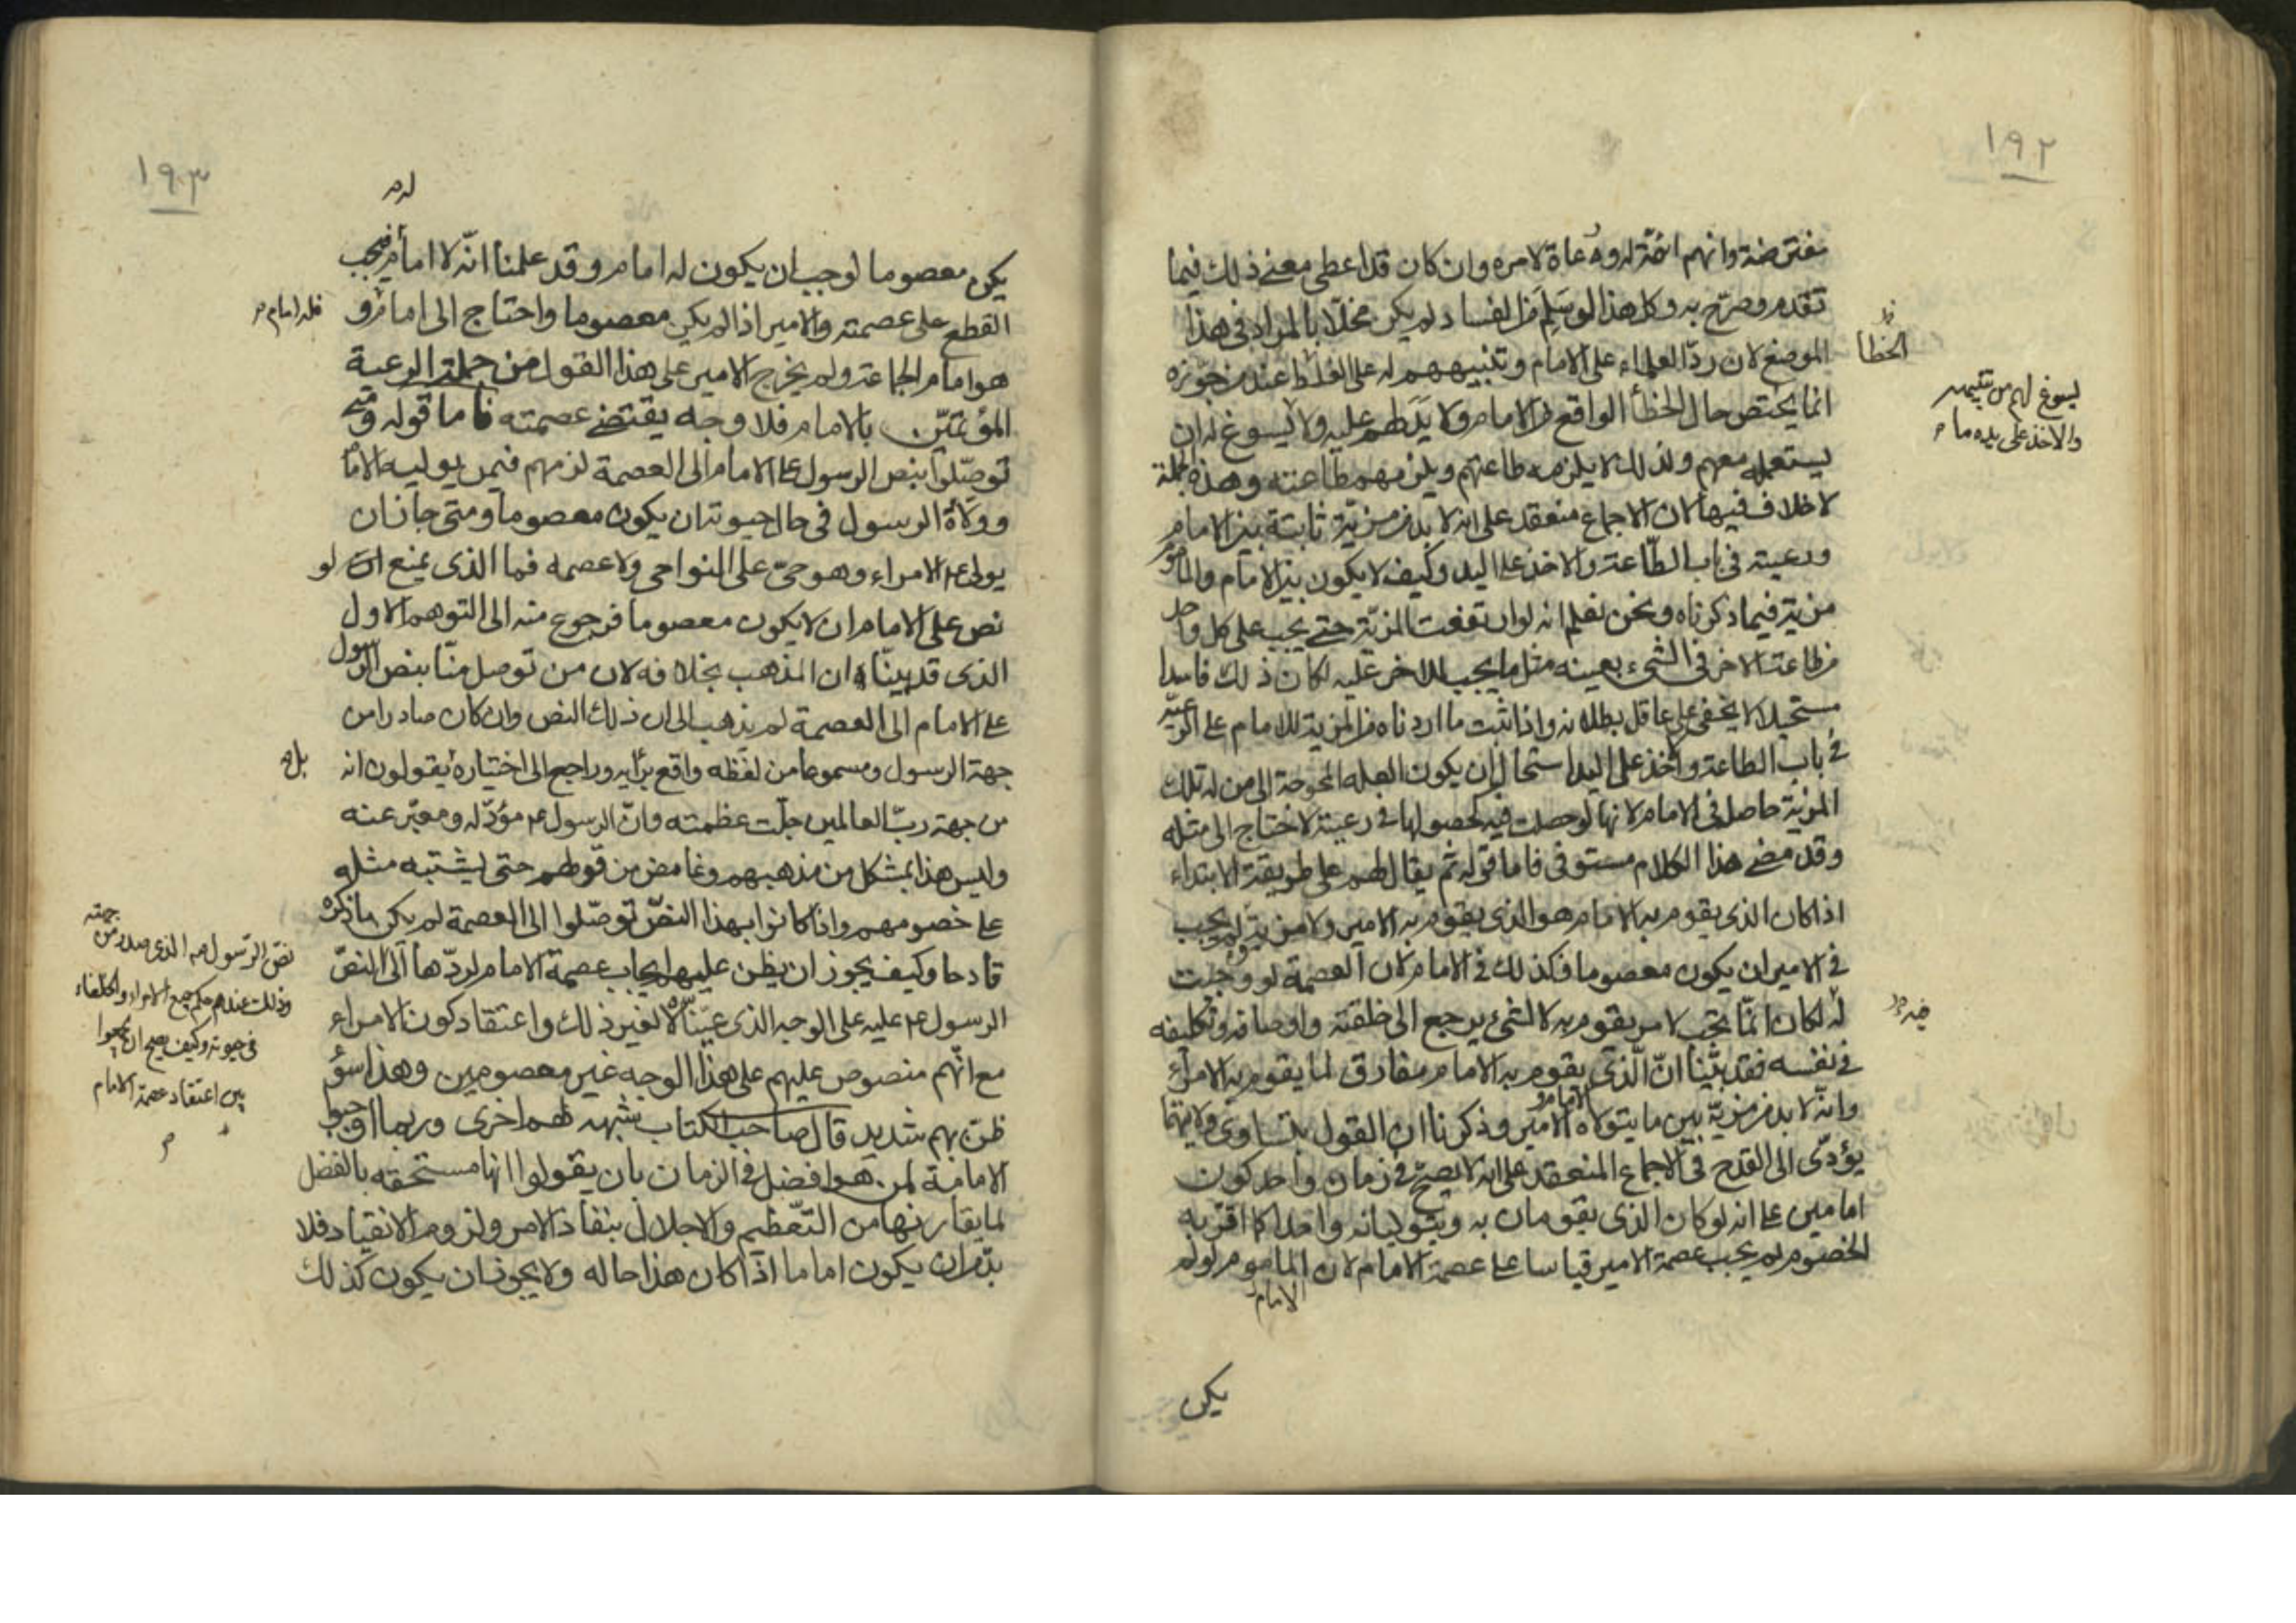 ١٩٢
مفترضة وانهم ائمّة له ورعاة لامره وان كان قد اعطى معنى ذلك فيما
تقدم وصرّح به وكل هذا لو سَلِمَ من الفساد لم يكن مخلّا بالمراد في هذا
الموضع لان ردّ العلماء على الامام وتنبيههم له على الغلط عند من جوّزه
انما يختص حال الخطأ الواقع من الامام ولا يد لهم عليه ولا يسوغ له ان
يستعمله معهم ولذلك لا يلزمه طاعتهم ويلزمهم طاعته وهذه جملة
لا خلاف فيها لان الاجماع منعقد على انه لا بد من مزيّة ثابتة بين الامام
ورعيته في باب الطّاعة والاخذ على اليد وكيف لا يكون بين الامام والماموم
مزية فيما ذكرناه ونحن نعلم انه لو ارتفعت المزيّة حتى يجب على كل واحد
من طاعة الاخر في الشيء بعينه مثل ما يجب للاخر عليه لكان ذلك فاسدا
مستحيلا لا يخفى على عاقل بطلانه واذا ثبت ما اردناه من المزية للامام على الرعيّة
في باب الطاعة والاخذ على اليد استحال ان يكون العلة المحوجة الى من له تلك
المزيّة حاصل في الامام لانها لو حصلت فيه كحصولها في رعيته لاحتاج الى مثله
وقد مضى هذا الكلام مستوفى فاما قوله ثم يقال لهم على طريقة الابتداء
اذا كان الذي يقوم به الامام هو الذي يقوم به الامير ولا مزية ولم يجب
في الامير ان يكون معصوما فكذلك في الامام لان العصمة لو وجبت
له لكان انّما تجب لامر يقوم به لا لشيء يرجع الى خلقته واوصافه وتكليفه
في نفسه فقد بيّنّا انّ الّذي يقوم به الامام مفارق لما يقوم به الامراء
وانّه لا بد من مزيّة بين ما يتولاه الامير وذكرنا ان القول بتساوي ولايتهما
الامام و
يؤدّي الى القدح في الاجماع المنعقد على انه لا يصحّ في زمان واحد كون
امامين على انه لو كان الذي يقومان به ويتوليانه واحدا كما اقترحه
الخصوم لم يجب عصمة الامير قياسا على عصمة الامام لان الماموم لو لم
الامام
يكن
الخطا
يسوغ لهم من
والاخذ على يده ما م
١٩٣
يكن معصوما لوجب ان يكون له امام وقد علمنا انّه لا امام فيجب
القطع على عصمته والامير اذا لم يكن معصوما واحتاج الى امام و
فله امام م
هو امام الجماعة ولم يخرج الامير على هذا القول من جملة الرعية
المؤتمّين بالامام فلا وجه يقتضى عصمته فاما قوله ومتى
توصّلوا بنص الرسول على الامام الى العصمة لزمهم فيمن يوليه الامام
وولاة الرسول في حال حيوته ان يكون معصوما ومتى جاز ان
يولى ع الامراء وهو حيّ على النواحي ولا عصمه فما الذى يمنع ان لو
نص على الامام ان لا يكون معصوما فرجوع منه الى التوهم الاول
الذى قد بينّا ان المذهب بخلافه لان من توصل منّا بنص الرسول
على الامام الى العصمة لم يذهب الى ان ذلك النص وان كان صادرا من
جهة الرسول ومسموعا من لفظه واقع برأيه وراجع الى اختياره يقولون انه
بل م
من جهة ربّ العالمين جلّت عظمته وانّ الرسول ع مؤدّ له ومعبّر عنه
وليس هذا بمشكل من مذهبهم وغامض من قولهم حتى يشتبه مثله
على خصومهم واذا كانوا بهذا النصّ توصّلوا الى العصمة لم يكن ما ذكره
قادحا وكيف يجوز ان يظن عليهم ايجاب عصمة الامام لردّها الى النصّ
الرسول ع عليه على الوجه الذى عيّنّاه لا لغير ذلك واعتقاد كون الامراء
مع انّهم منصوص عليهم على هذا الوجه غير معصومين وهذا سؤ
ظن بهم شديد قال صاحب الكتاب شبهه لهم اخرى وربما اوجبوا
الامامة لمن هو افضل في الزمان بان يقولوا انها مستحقه بالفضل
لما يقارنها من التّعظيم والاجلال بنفاذ الامر ولزوم الانقياد فلا
بدّ من ان يكون اماما اذا كان هذا حاله ولا يجوز ان يكون كذلك
نصّ الرّسول ص الذى صدر من جهته
وذلك عندهم حكم جميع الامراء والخلفاء
في حيوته وكيف يصح ان يجمعوا
بين اعتقاد عصمة الامام